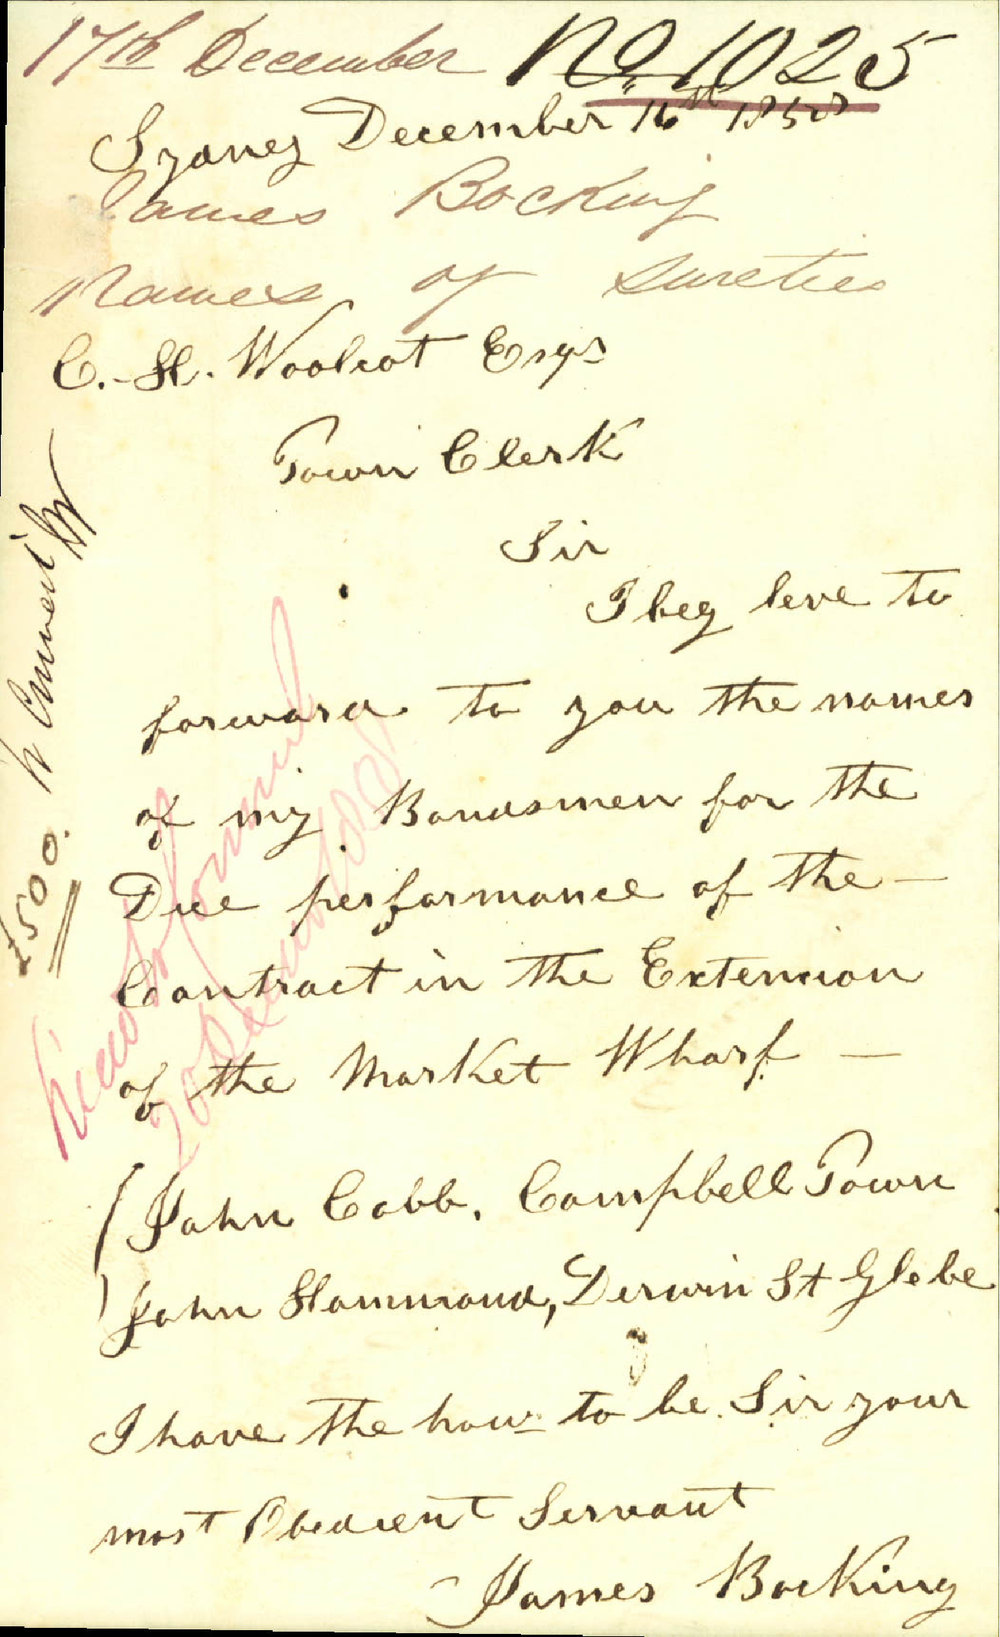 17th December No 1025
Sydney December 16th 1858
James Bocking
Names of Sureties
C. H. Woolcot Esqr
Town Clerk
Sir
I beg leve to
forward to you the names
of my Bondsmen for the
Due performance of the -
Contract in the Extension
of the Market Wharf -
John Cobb, Campbell Town
John Hammond, Derwin St Glebe
I have the hour to be Sir your
most Obedient Servant
James Bocking
£500.
20 December 1858